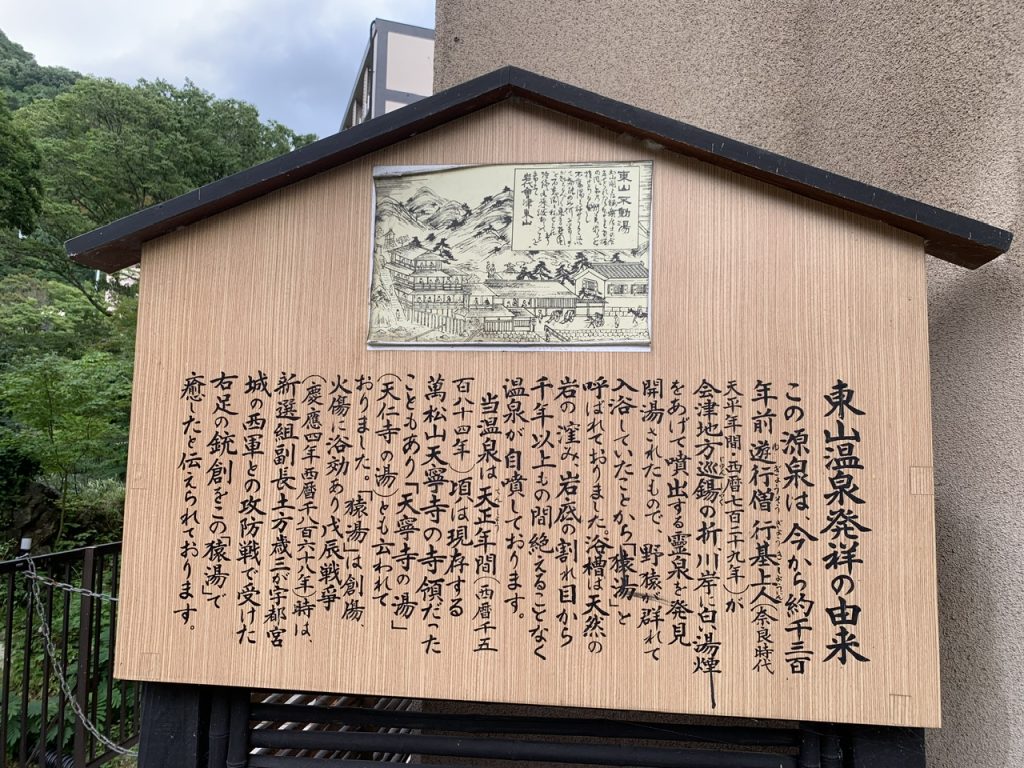 東山温泉発祥の由来
この源泉は、今から約千三百
年前遊行僧行基上人(奈良時代
天平年間・西暦七百二十九年)が
会津地方巡錫の折、川岸に白い湯煙
をあげて噴出する霊泉を発見
開湯されたもので、野猿が群れて
入浴していたことから「猿湯」と
呼ばれておりました。浴槽は天然の
岩の窪み、岩底の割れ目から
千年以上もの間絶えることなく
温泉が自噴しております。
当温泉は、天正年間(西暦千五
百八十四年)頃は現存する
萬松山天寧寺の寺領だった
こともあり「天寧寺の湯」
(天仁寺の湯)とも云われて
おりました。「猿湯」は創傷、
火傷に浴効あり、戊辰戦争
(慶應四年西暦千八百六十八年)時は、
新選組副長土方歳三が宇都宮
城の西軍との攻防戦で受けた
右足の銃創をこの「猿湯」で
癒したと伝えられております。
東山不動湯
岩代會津東山